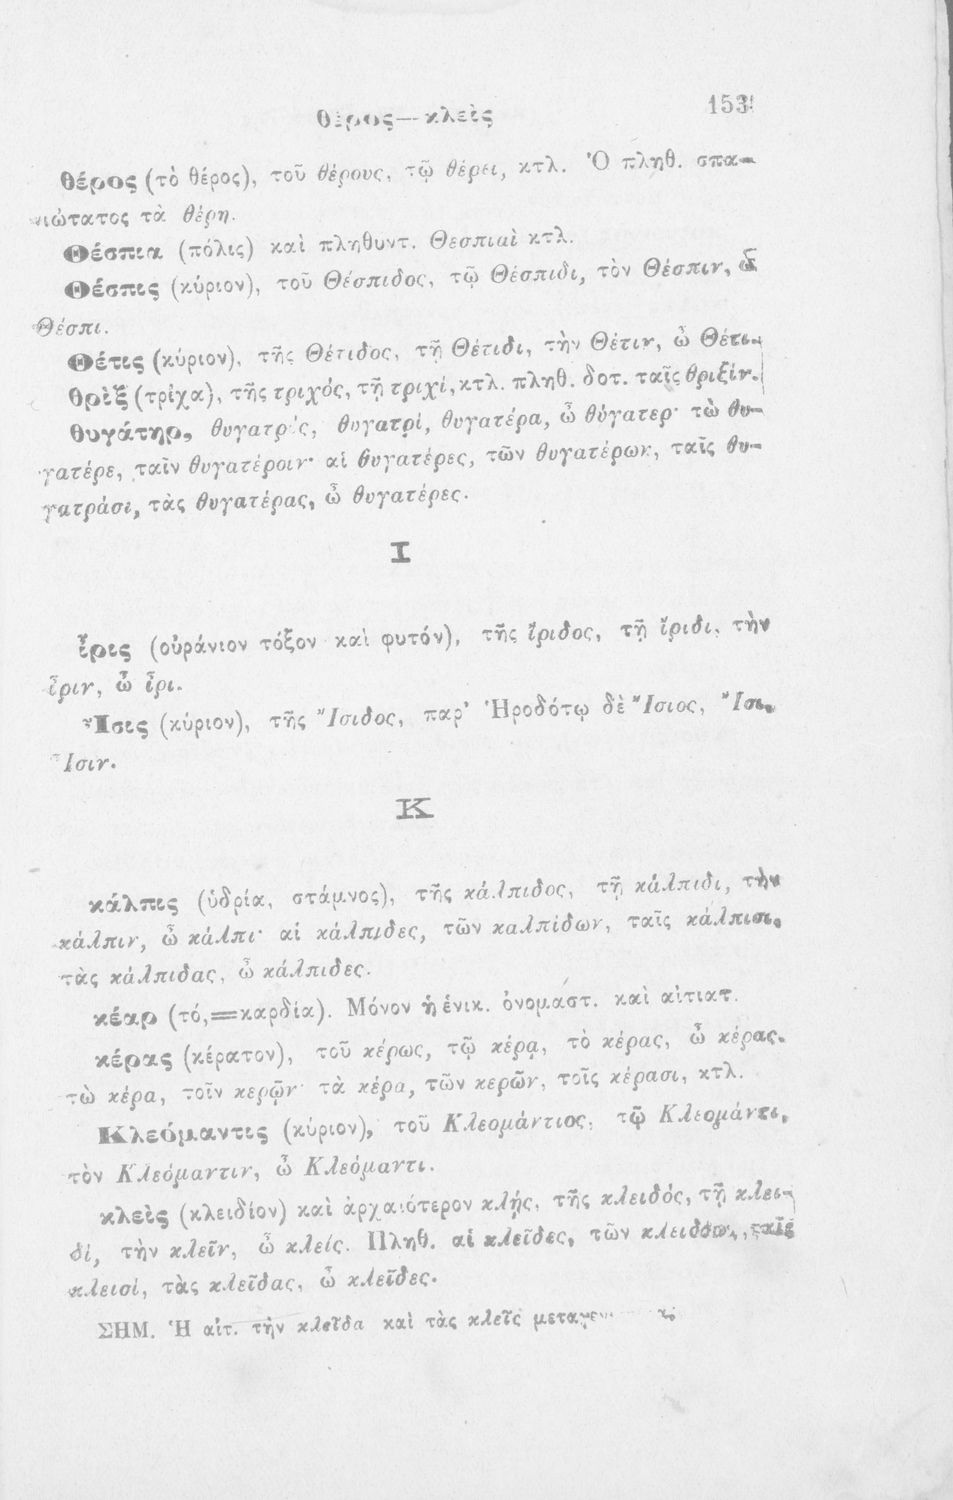 θέρος—κλεὶς 153
θέρος (τὸ θέρος), τοῦ θέρους, τῷ θέρει, κτλ. Ὁ πληθ. σπα-
νιώτατος τὰ θέρη.
Θέσπια (πόλις) καὶ πληθυντ. Θεσπιαὶ κτλ.
Θέσπις (κύριον), τοῦ Θέσπιδος, τῷ Θέσπιδι, τὸν Θέσπιν, ὦ
Θέσπι.
Θέτις (κύριον), τῆς Θέτιδος, τῇ Θέτιδι, τὴν Θέτιν, ὦ Θέτι.
θρὶξ (τρίχα), τῆς τριχός, τῇ τριχί, κτλ. πληθ. δοτ. ταῖς θριξίν.
θυγάτηρ, θυγατρός, θυγατρί, θυγατέρα, ὦ θύγατερ· τὼ θυ-
γατέρε, ταῖν θυγατέροιν· αἱ θυγατέρες, τῶν θυγατέρων, ταῖς θυ-
γατράσι, τὰς θυγατέρας, ὦ θυγατέρες.
Ι
ἶρις (οὐράνιον τόξον καὶ φυτόν), τῆς ἴριδος, τῇ ἴριδι, τὴν
ἶριν, ὦ ἶρι.
Ἶσις (κύριον), τῆς Ἴσιδος, παρ' Ἡροδότῳ δὲ Ἴσιος, Ἴσι,
Ἶσιν.
Κ
κάλπις (ὑδρία, στάμνος), τῆς κάλπιδος, τῇ κάλπιδι, τὴν
κάλπιν, ὦ κάλπι· αἱ κάλπιδες, τῶν καλπίδων, ταῖς κάλπισι,
τὰς κάλπιδας, ὦ κάλπιδες.
κέαρ (τό,=καρδία). Μόνον ἡ ἑνικ. ὀνομάστ. καὶ αἰτιατ.
κέρας (κέρατον), τοῦ κέρως, τῷ κέρᾳ, τὸ κέρας, ὦ κέρας.
τὼ κέρα, τοῖν κερῷν· τὰ κέρα, τῶν κερῶν, τοῖς κέρασι, κτλ.
Κλεόμαντις (κύριον), τοῦ Κλεομάντιος, τῷ Κλεομάντι,
τὸν Κλεόμαντιν, ὦ Κλεόμαντι.
κλεὶς (κλειδίον) καὶ ἀρχαιότερον κλῄς, τῆς κλειδός, τῇ κλει-
δί, τὴν κλεῖν, ὦ κλείς. Πληθ. αἱ κλεῖδες, τῶν κλειδῶν, ταῖς
κλεισί, τὰς κλεῖδας, ὦ κλεῖδες.
ΣΗΜ. Ἡ αἰτ. τὴν κλεῖδα καὶ τὰς κλεῖς